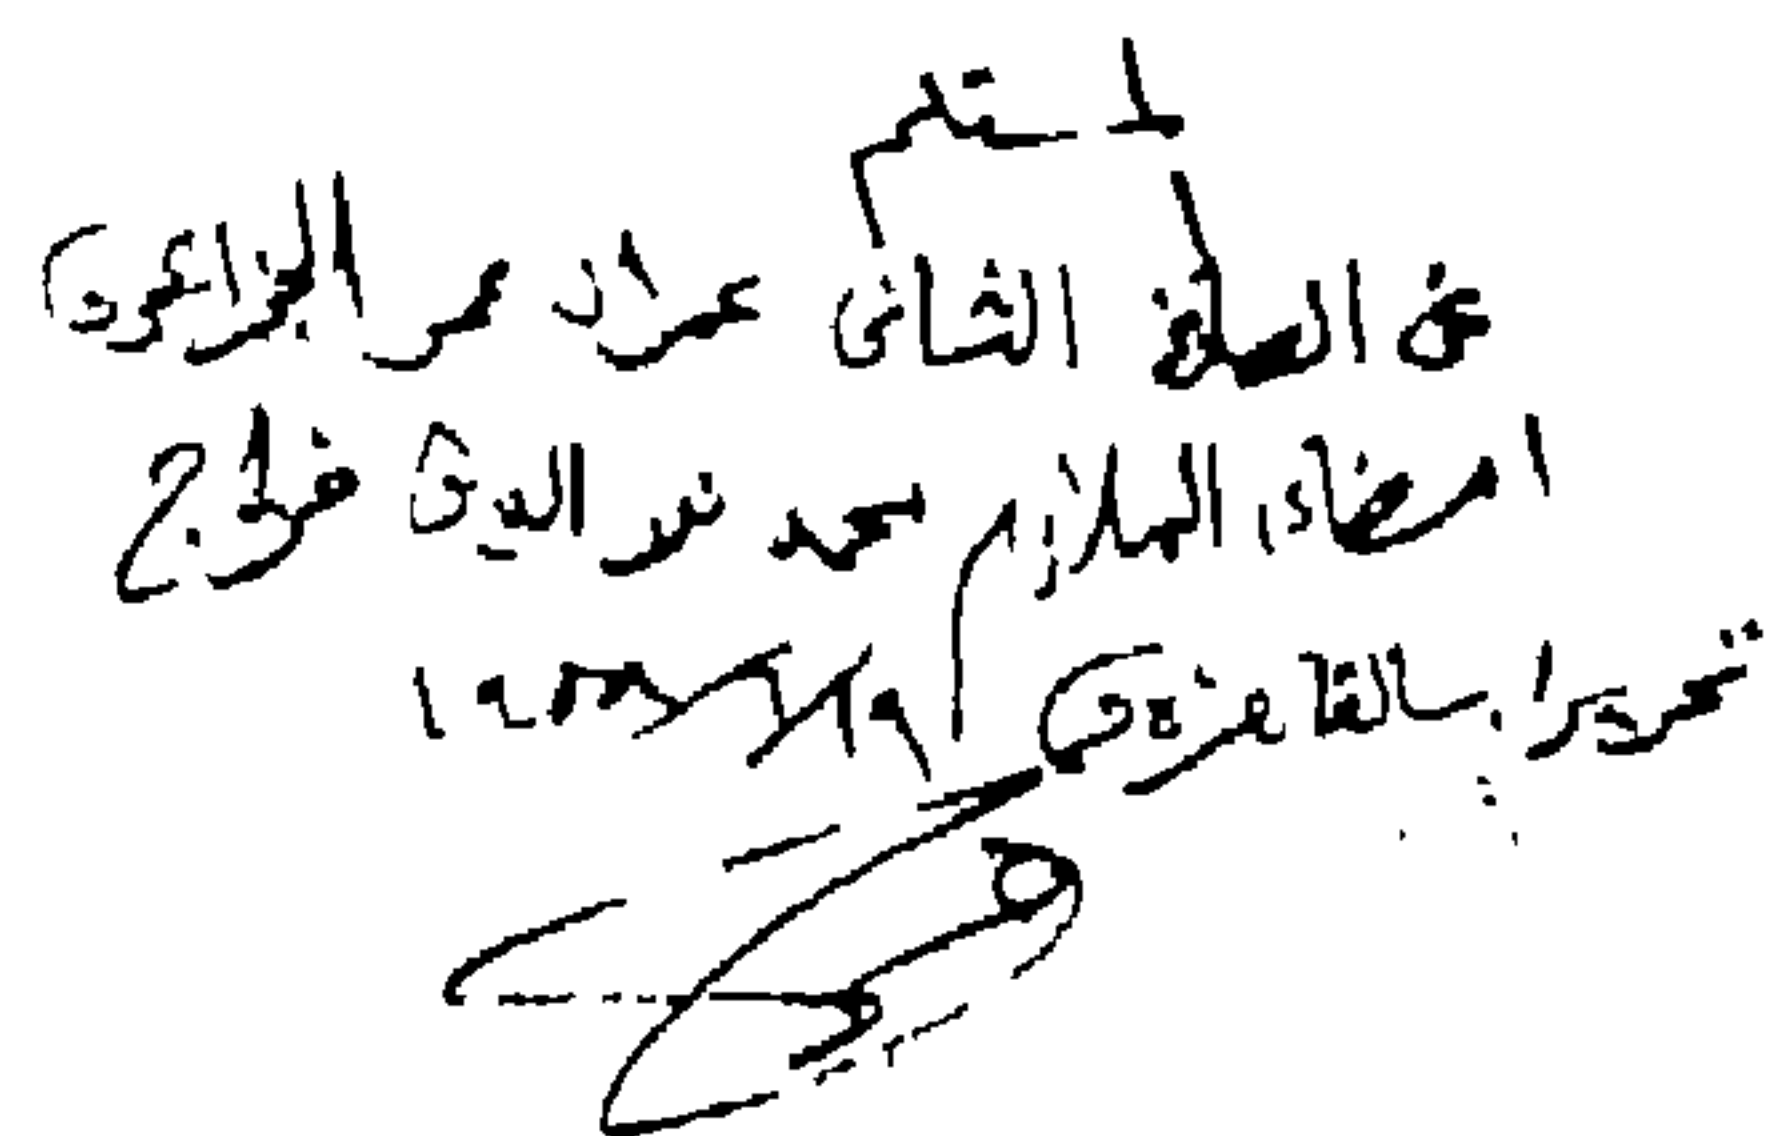 استلم
عن الصاغ الثانى عمران عمر الجزائرى
امضاء الملازم محمد نور الدين فراج
تحريرا بالقاهرة فى ١٩